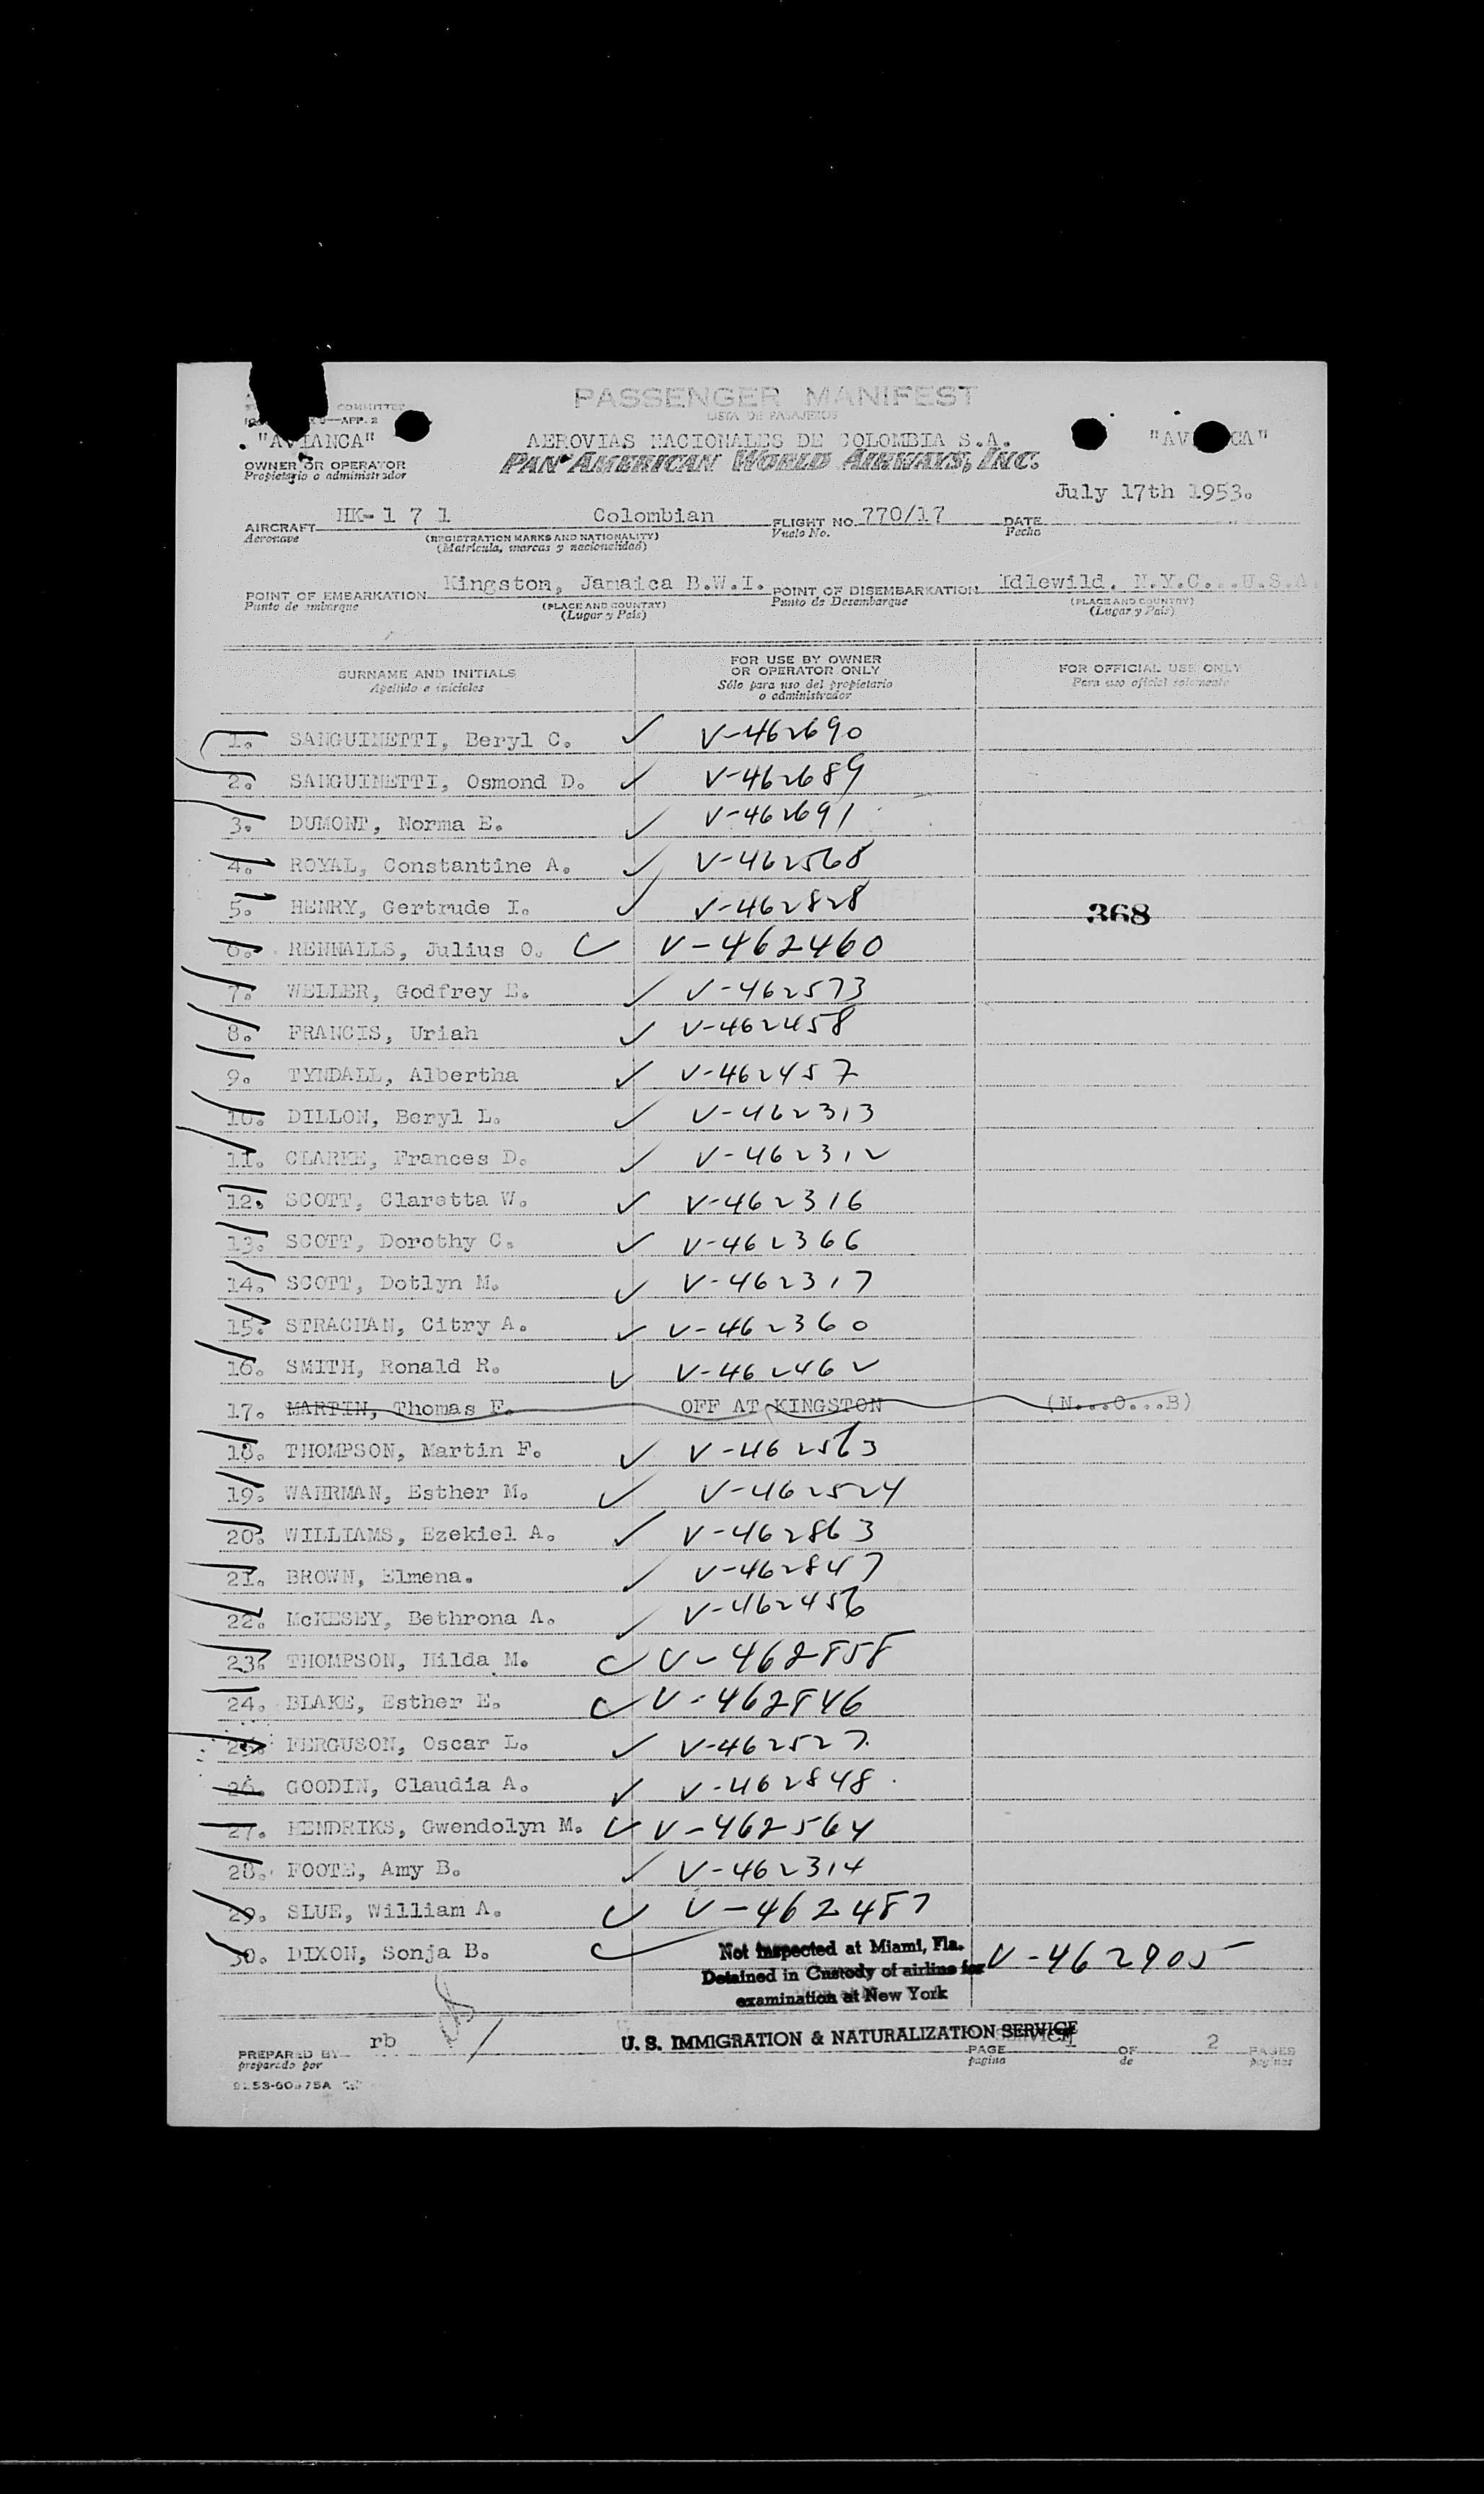 PASSENGER MANIFEST
LISTA DE PASAJEROS
COMMITTEE
APP. 2
"AVIANCA" AEROVIAS NACIONALES DE COLOMBIA S.A. "AVIANCA"
OWNER OR OPERATOR PAN AMERICAN WORLD AIRWAYS, INC.
Propietario o administrador
July 17th 1953.
AIRCRAFT HK-1 7 1 Colombian FLIGHT NO. 770/17 DATE
Aeronave (REGISTRATION MARKS AND NATIONALITY) Vuelo No. Fecha
(Matrícula, marcas y nacionalidad)
POINT OF EMBARKATION Kingston, Jamaica B.W.I. POINT OF DISEMBARKATION Idlewild. N.Y.C...U.S.A.
Punto de embarque (PLACE AND COUNTRY) Punto de Desembarque (PLACE AND COUNTRY)
(Lugar y País) (Lugar y País)
SURNAME AND INITIALS FOR USE BY OWNER OR OPERATOR ONLY FOR OFFICIAL USE ONLY
Apellido e iniciales Sólo para uso del propietario o administrador Para uso oficial solamente
1. SANGUINETTI, Beryl C. ✓ V-462690
2. SANGUINETTI, Osmond D. ✓ V-462689
3. DUMONT, Norma E. ✓ V-462691
4. ROYAL, Constantine A. ✓ V-462568
5. HENRY, Gertrude I. ✓ V-462828 368
6. RENNALLS, Julius O. ✓ V-462460
7. WELLER, Godfrey E. ✓ V-462573
8. FRANCIS, Uriah ✓ V-462458
9. TYNDALL, Albertha ✓ V-462457
10. DILLON, Beryl L. ✓ V-462313
11. CLARKE, Frances D. ✓ V-462312
12. SCOTT, Claretta W. ✓ V-462316
13. SCOTT, Dorothy C. ✓ V-462366
14. SCOTT, Dotlyn M. ✓ V-462317
15. STRACHAN, Citry A. ✓ V-462360
16. SMITH, Ronald R. ✓ V-462462
17. MARTIN, Thomas F. OFF AT KINGSTON (N...O...B)
18. THOMPSON, Martin F. ✓ V-462563
19. WAHRMAN, Esther M. ✓ V-462524
20. WILLIAMS, Ezekiel A. ✓ V-462863
21. BROWN, Elmena. ✓ V-462847
22. McKESEY, Bethrona A. ✓ V-462456
23. THOMPSON, Hilda M. ✓ V-462858
24. BLAKE, Esther E. ✓ V-462846
25. FERGUSON, Oscar L. ✓ V-462527
26. GOODIN, Claudia A. ✓ V-462848
27. HENDRIKS, Gwendolyn M. ✓ V-462564
28. FOOTE, Amy B. ✓ V-462314
29. SLUE, William A. ✓ V-462487
30. DIXON, Sonja B. ✓ V-462905
Not Inspected at Miami, Fla.
Detained in Custody of airline for
examination at New York
U. S. IMMIGRATION & NATURALIZATION SERVICE
PREPARED BY rb PAGE 1 OF 2 PAGES
preparado por página de páginas